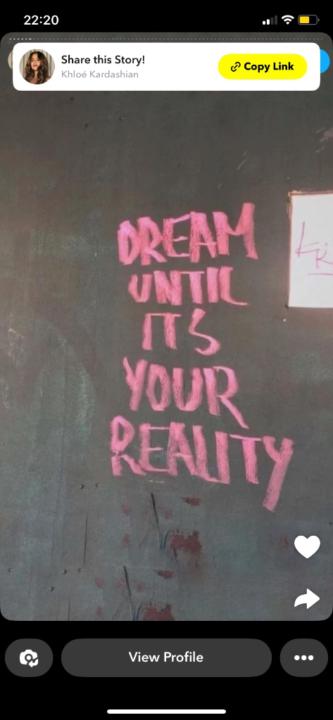 22:20
Share this Story!
Khloé Kardashian
Copy Link
DREAM
UNTIL
IT'S
YOUR
REALITY
View Profile